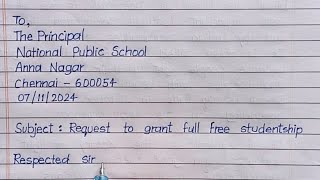 To,
The Principal
National Public School
Anna Nagar
Chennai - 600054
07/11/2024
Subject : Request to grant full free studentship
Respected sir